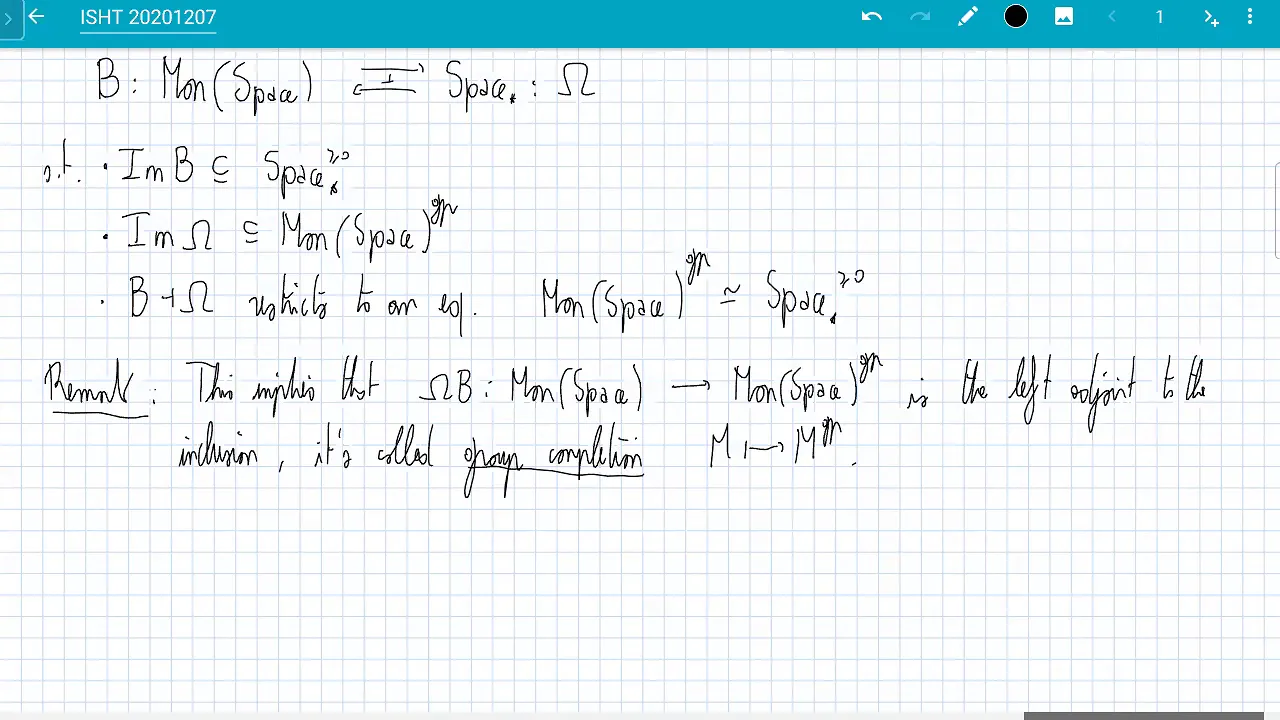 ISHT 20201207
1
B : Mon(Space) ⇄ Space* : Ω
s.t. · Im B ⊆ Space*^{≥0}
· Im Ω ⊆ Mon(Space)^{gp}
· B ⊣ Ω restricts to an eq. Mon(Space)^{gp} ≃ Space*^{≥0}
Remark : This implies that ΩB : Mon(Space) → Mon(Space)^{gp} is the left adjoint to the
inclusion, it's called group completion M ↦ M^{gp}.